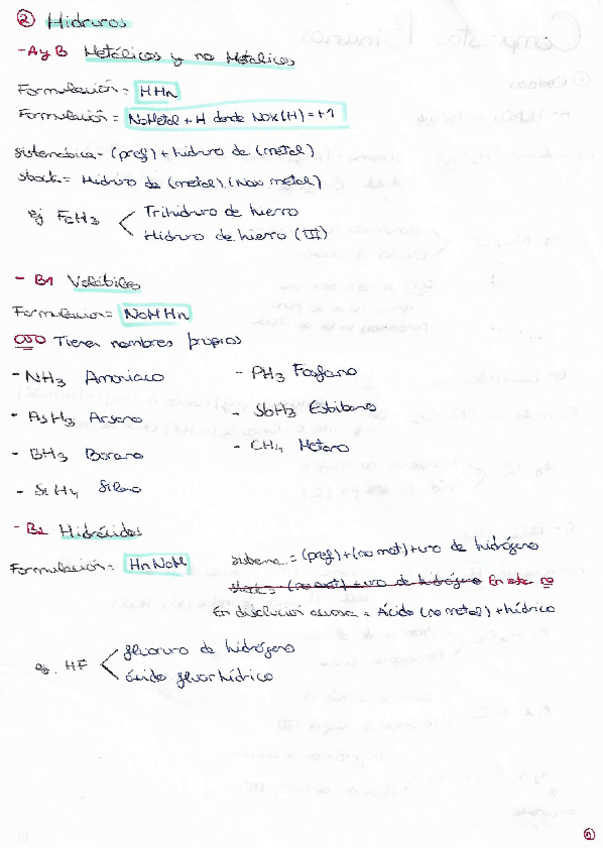 ② Hidruros
- A y B Metálicos y no Metálicos
Formulación = MHn
Formulación = NoMetal + H donde NOX (H) = +1
sistemática = (pref) + hidruro de (metal)
stock = Hidruro de (metal) (Nox metal)
ej FeH3
Trihidruro de hierro
Hidruro de hierro (III)
- B1 Volátiles
Formulación = NoM Hn
OJO Tienen nombres propios
- NH3 Amoniaco - PH3 Fosfano
- AsH3 Arsano - SbH3 Estibano
- BH3 Borano - CH4 Metano
- SiH4 Silano
- B2 Hidrácidos
Formulación = Hn NoM sistema = (pref) + (no met) + uro de hidrógeno
stock = (no met) + uro de hidrógeno En este no
En disolución acuosa = Ácido (no metal) + hídrico
eg. HF
fluoruro de hidrógeno
ácido fluorhídrico